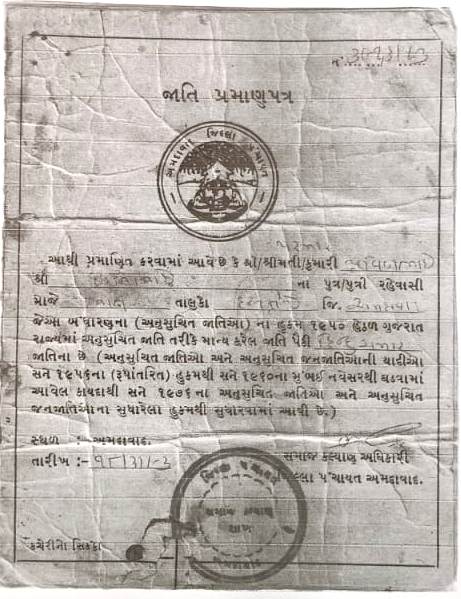 જાતિ પ્રમાણપત્ર
અમદાવાદ જિલ્લા પંચાયત
પરમાર
આથી પ્રમાણિત કરવામાં આવે છે કે શ્રી/શ્રીમતી/કુમારી
શ્રી ના પુત્ર/પુત્રી રહેવાસી
ગ્રામ તાલુકા જિ. અમદાવાદ
જેઓ બંધારણના (અનુસુચિત જાતિઓ) ના હુકમ ૧૯૫૦ હેઠળ ગુજરાત
રાજ્યમાં અનુસુચિત જાતિ તરીકે માન્ય કરેલ જાતિ પૈકી હિન્દુ
જાતિના છે (અનુસુચિત જાતિઓ અને અનુસુચિત જનજાતિઓની યાદીઓ
સને ૧૯૫૬ના (રૂપાંતરિત) હુકમથી સને ૧૯૬૦ના મુંબઈ નવેસરથી ઘડવામાં
આવેલ કાયદાથી સને ૧૯૭૬ના અનુસુચિત જાતિઓ અને અનુસુચિત
જનજાતિઓના સુધારેલા હુકમથી સુધારવામાં આવી છે.)
સ્થળ :- અમદાવાદ.
સમાજ કલ્યાણ અધિકારી
તારીખ :-
જિલ્લા પંચાયત અમદાવાદ.
જિલ્લા પંચાયત
સમાજ કલ્યાણ
શાખા
અમદાવાદ
કચેરીનો સિક્કો